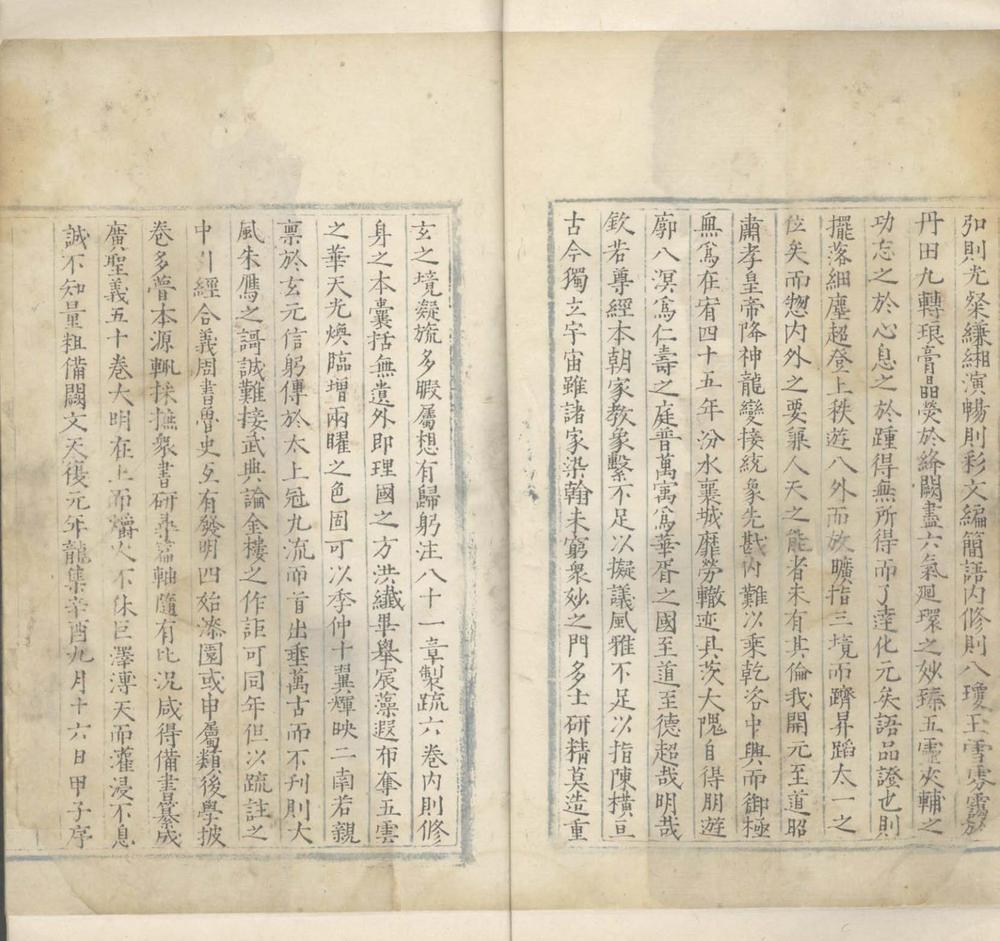 弘則光粲縑緗演暢則彩文編簡語內修則八瓊玉雪雰靄於
丹田九轉琅膏晶熒於絳闕盡六氣廻環之妙臻五靈夾輔之
功忘之於心息之於踵得無所得而了達化元矣語品證也則
擺落細塵超登上秩遊八外而放曠指三境而躋昇蹈太一之
位矣而惣內外之要兼人天之能者未有其倫我開元至道昭
肅孝皇帝降神龍變接統象先戡內難以乘乾洛中興而御極
無爲在宥四十五年汾水襄城靡勞轍迹具茨大隗自得朋遊
廓八溟爲仁壽之庭普萬寓爲華胥之國至道至德超哉明哉
欽若尊經本朝家教象繫不足以擬議風雅不足以指陳橫亘
古今獨立宇宙雖諸家染翰未窮衆妙之門多士研精莫造重
玄之境凝旒多暇屬想有歸躬注八十一章製疏六卷內則修
身之本囊括無遺外即理國之方洪纖畢舉宸藻遐布奪五雲
之華天光煥臨增兩曜之色固可以季仲十翼輝映二南若親
禀於玄元信躬傳於太上冠九流而首出垂萬古而不刊則大
風朱鴈之謌誠難接武典論金樓之作詎可同年但以疏註之
中引經合義周書魯史互有發明四始漆園或申屬類後學披
卷多瞢本源輒採摭衆書研尋篇軸隨有比況咸得備書纂成
廣聖義五十卷大明在上而爝火不休巨澤漙天而灌浸不息
誠不知量粗備闕文天復元年龍集辛酉九月十六日甲子序